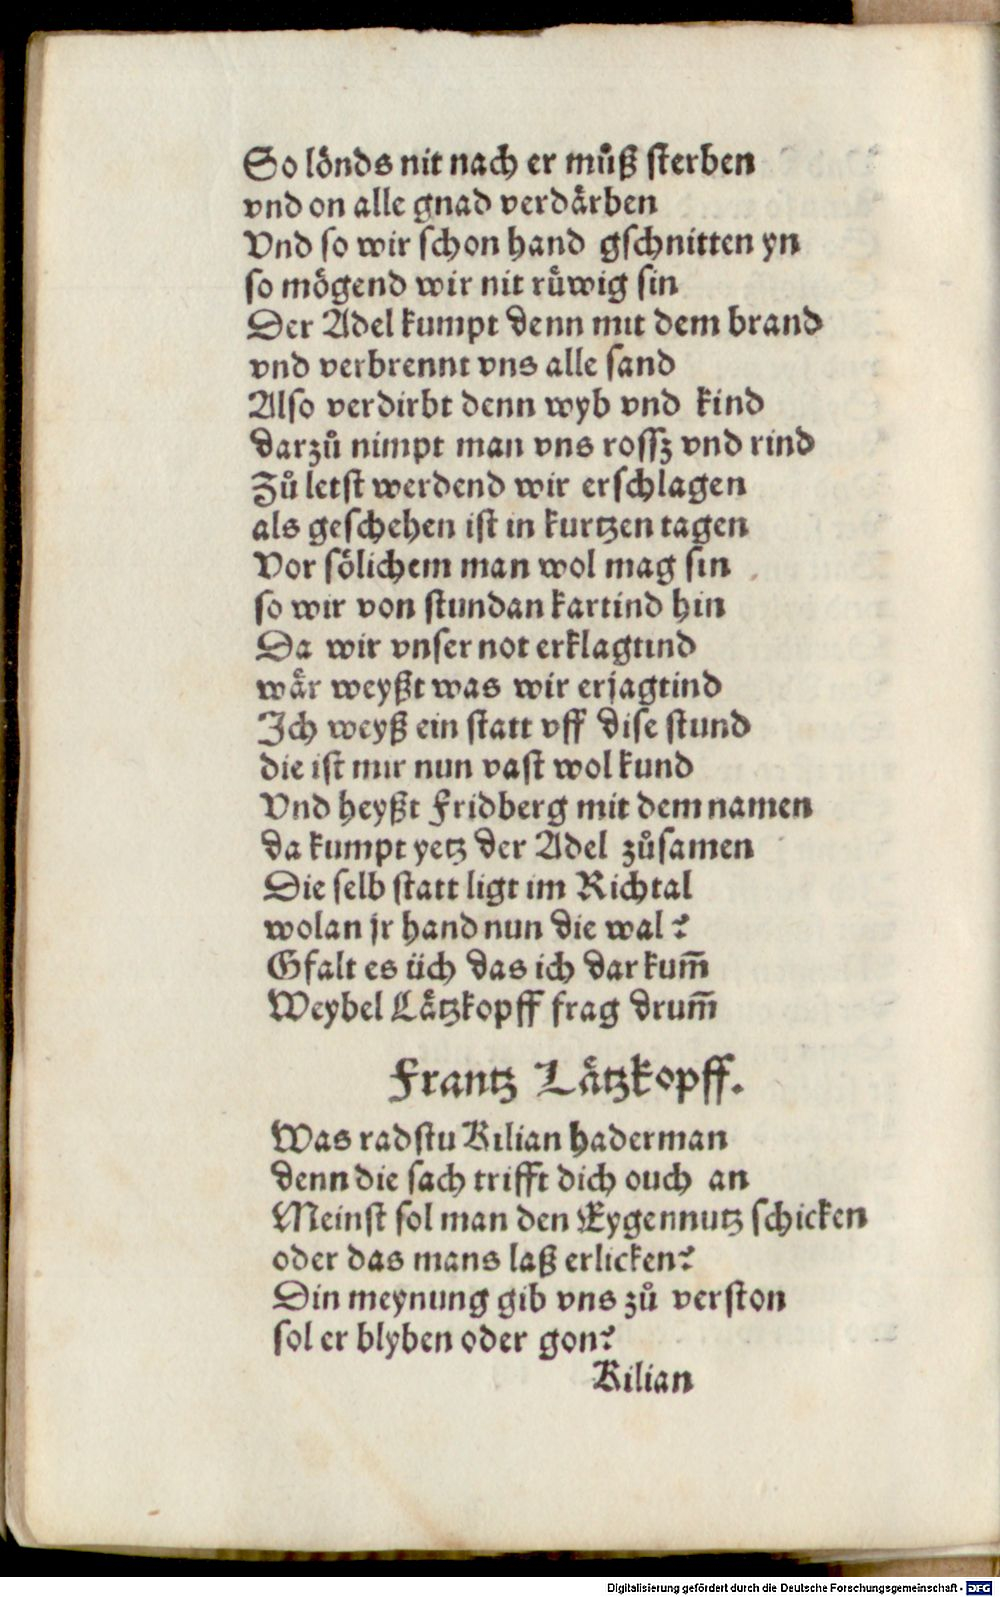 So loͤnds nit nach er muͦß sterben
vnd on alle gnad verdaͤrben
Vnd so wir schon hand gschnitten yn
so moͤgend wir nit ruͤwig sin
Der Adel kumpt denn mit dem brand
vnd verbrennt vns alle sand
Also verdirbt denn wyb vnd kind
darzuͦ nimpt man vns rossz vnd rind
Zuͦ letst werdend wir erschlagen
als geschehen ist in kurtzen tagen
Vor soͤlichem man wol mag sin
so wir von stundan kartind hin
Da wir vnser not erklagtind
waͤr weyßt was wir erjagtind
Ich weyß ein statt vff dise stund
die ist mir nun vast wol kund
Vnd heyßt Fridberg mit dem namen
da kumpt yetz der Adel zuͦsamen
Die selb statt ligt im Richtal
wolan jr hand nun die wal?
Gfalt es üch das ich dar kum̄
Weybel Laͤtzkopff frag drum̄
Frantz Laͤtzkopff.
Was radstu Kilian haderman
denn die sach trifft dich ouch an
Meinst sol man den Eygennutz schicken
oder das mans laß erlicken?
Din meynung gib vns zuͦ verston
sol er blyben oder gon?
Kilian
Digitalisierung gefördert durch die Deutsche Forschungsgemeinschaft - DFG